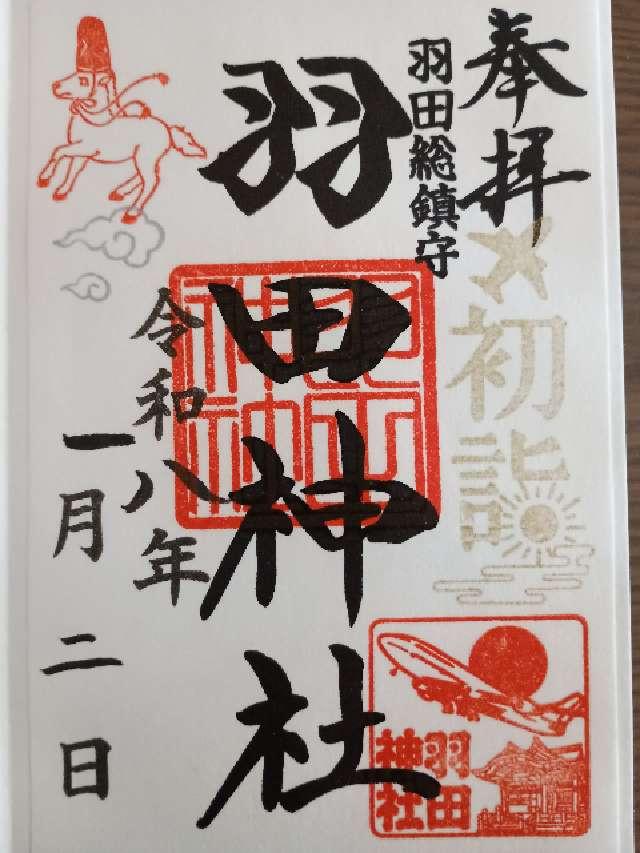 奉拝
初詣
羽田総鎮守
羽田神社
令和八年
一月二日
羽田
神社